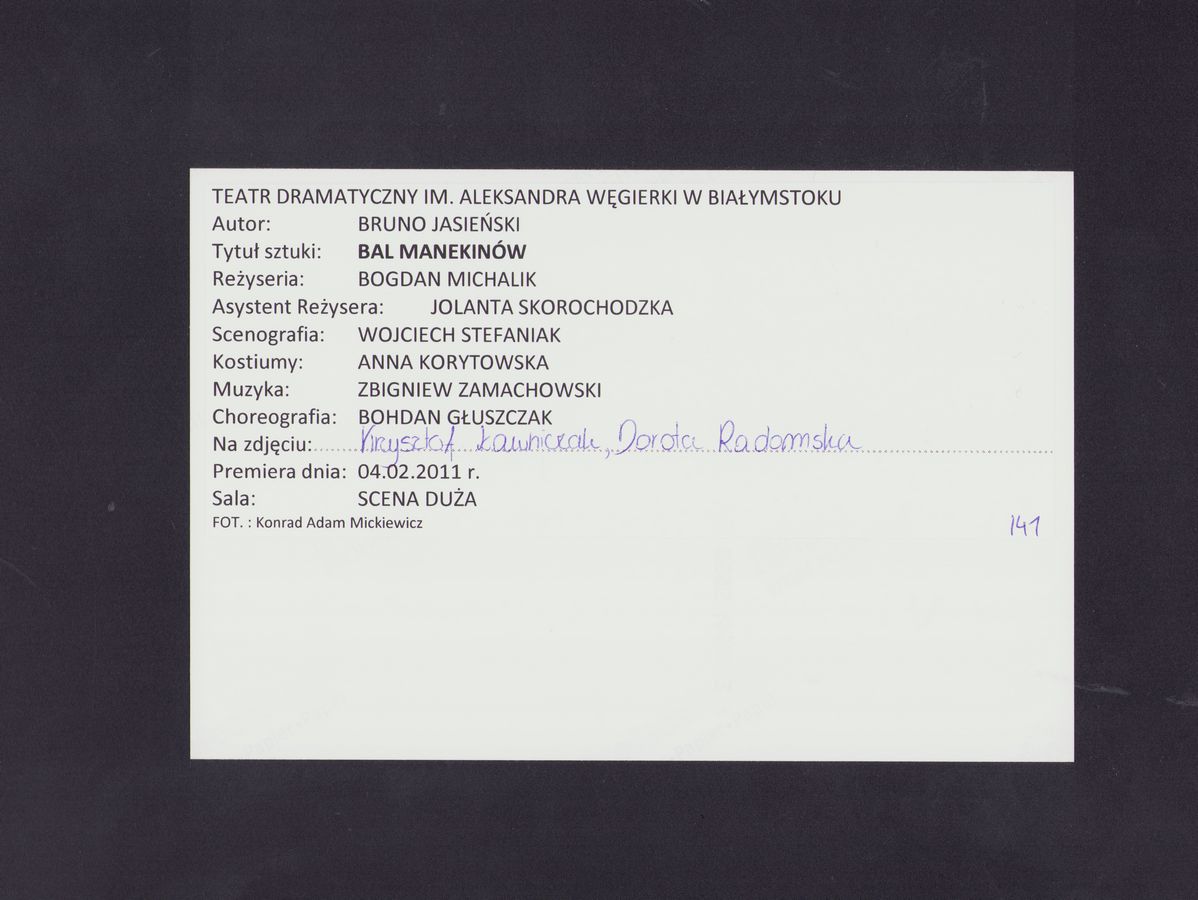 TEATR DRAMATYCZNY IM. ALEKSANDRA WĘGIERKI W BIAŁYMSTOKU
Autor: BRUNO JASIEŃSKI
Tytuł sztuki: BAL MANEKINÓW
Reżyseria: BOGDAN MICHALIK
Asystent Reżysera: JOLANTA SKOROCHODZKA
Scenografia: WOJCIECH STEFANIAK
Kostiumy: ANNA KORYTOWSKA
Muzyka: ZBIGNIEW ZAMACHOWSKI
Choreografia: BOHDAN GŁUSZCZAK
Na zdjęciu: Krzysztof Ławniczak, Dorota Radomska
Premiera dnia: 04.02.2011 r.
Sala: SCENA DUŻA
FOT. : Konrad Adam Mickiewicz
141